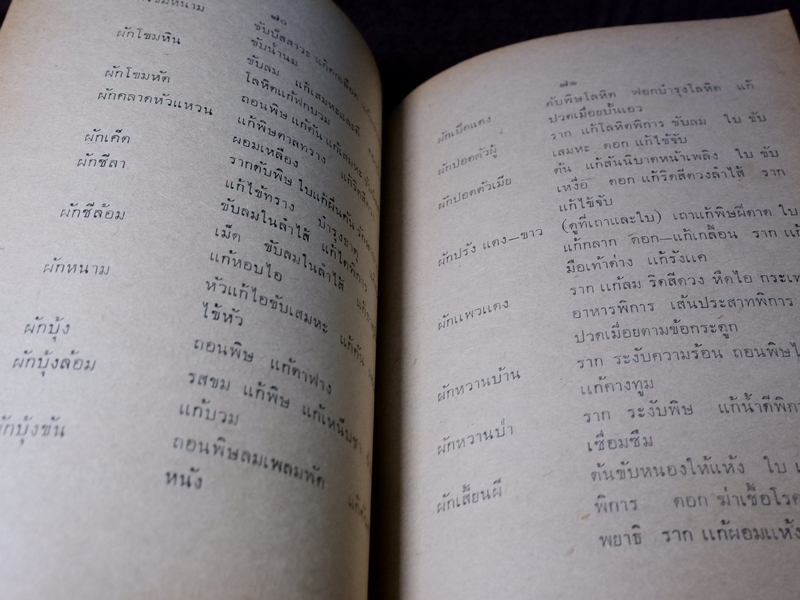 ๗๐
ผักโขมหนาม ขับปัสสาวะ
ผักโขมหิน ขับน้ำนม
ขับลม แก้เสมหะและดี
ผักโขมหัด โลหิตแก้ฟกบวม
ผักคลาดหัวแหวน ถอนพิษ แก้คัน แก้เสมหะ
แก้พิษตาลทราง แก้ริดสี
ผักเค็ด ผอมเหลือง
ผักชีลา รากดับพิษ ใบแก้ฝีนดัน
แก้ไข้ทราง บำรุงธาตุ
ผักชีล้อม ขับลมในลำไส้ แก้ไตพิการ
เม็ด ขับลมในลำไส้
แก้หอบไอ
ผักหนาม หัวแก้ไอขับเสมหะ แก้คัน
ไข้หัว
ผักบุ้ง ถอนพิษ แก้ตาฟาง
ผักบุ้งล้อม รสขม แก้พิษ แก้เหน็บชา
แก้บวม
ผักบุ้งขัน ถอนพิษลมเพลมพัด
หนัง
๗๑
ผักเป็ดแดง ดับพิษโลหิต ฟอกบำรุงโลหิต แก้
ปวดเมื่อยบั้นเอว
ผักปอดตัวผู้ ราก แก้โลหิตพิการ ขับลม ใบ ขับ
เสมหะ ดอก แก้ไข้จับ
ผักปอดตัวเมีย ต้น แก้สันนิบาตหน้าเพลิง ใบ ขับ
เหงื่อ ดอก แก้ริดสีดวงลำไส้ ราก
แก้ไข้จับ
ผักปรัง แดง–ขาว (ดูที่เถาและใบ) เถาแก้พิษฝีดาด ใบ
แก้กลาก ดอก–แก้เกลื้อน ราก แก้
มือเท้าด่าง แก้รังแค
ผักแพวแดง ราก แก้ลม ริดสีดวง หืดไอ กระเพ
อาหารพิการ เส้นประสาทพิการ
ปวดเมื่อยตามข้อกระดูก
ผักหวานบ้าน ราก ระงับความร้อน ถอนพิษไ
แก้คางทูม
ผักหวานป่า ราก ระงับพิษ แก้น้ำดีพิกา
เซื่อมซึม
ผักเสี้ยนผี ต้นขับหนองให้แห้ง ใบ
พิการ ดอก ฆ่าเชื้อโรค
พยาธิ ราก แก้ผอมแห้ง